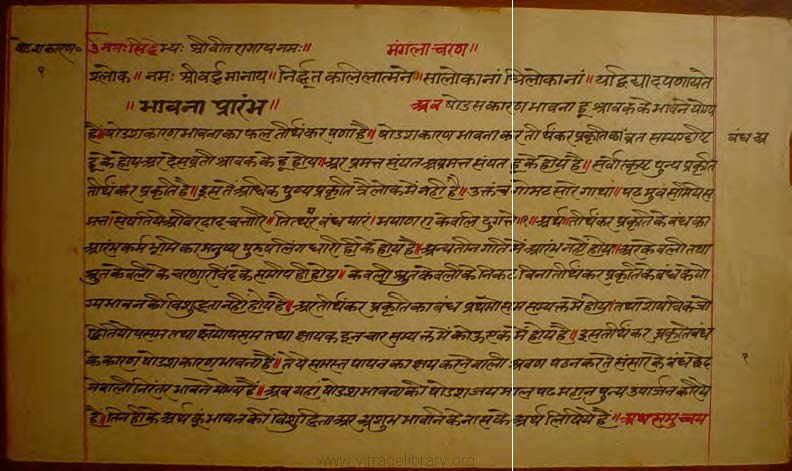 षोडशकारण॰ ॐनमःसिद्धेभ्यः श्रीवीतरागायनमः॥ मंगलाचरण॥
१
श्लोक॥नमः श्रीवर्द्धमानाय॥निर्द्धूतकलिलात्मने॥सालोकानांत्रिलोकानां॥यद्विद्यादर्पणायते
॥भावना प्रारंभ॥ अथ षोडसकारणभावना हू श्रावक के भावने योग्य
है॥षोडशकारणभावनाका फल तीर्थंकरपणा है॥ षोडशकारण भावना कर तीर्थंकरप्रकृतिका व्रत सम्यग्दृष्टि बंध अ
हू के होय अर देसव्रतीश्रावक के हू होय॥अर प्रमत्तसंयत अप्रमत्तसंयत हू के होय है॥सर्वोत्कृष्ट पुन्यप्रकृति
तीर्थंकरप्रकृति है॥इसतें अधिक पुण्यप्रकृति त्रैलोक में नही है॥उक्तंच गोमटसार गाथा॥पढमुवसमियेस
मत्ते॥सेसतियेअविरदादिचत्तारि॥तित्थयर बंध पारं॥भयाणरा केवलि दुगंते॥१॥अर्थ॥तीर्थंकरप्रकृति के बंधका
प्रारंभ कर्मभूमि का मनुष्य पुरुषलिंगधारी ही के होय है॥अन्य तीन गति में आरंभ नही होय॥अर केवली तथा
श्रुतकेवली के चरणारविंद के समीप ही होय॥केवली श्रुतकेवली के निकट विना तीर्थंकरप्रकृति के बंध के यो
ग्यभावन की विशुद्धता नही होय है॥अर तीर्थंकर प्रकृति का बंध प्रथमोसम सम्यक्त में होय॥तथा शेषत्रिक जो
द्वितियोपसम तथा क्षयोपसम तथा क्षायक इन चार सम्यक्त में कोऊ एक में होय है॥इस तीर्थंकर प्रकृति बंध
के कारण षोडशकारणभावना है॥ते ये समस्त पापन का क्षय करनेवाली श्रवण पठन करतें संसार के बंध छेद १
नेवाली निरंतर भावने योग्य है॥अब यहां षोडशभावनाकी षोडश जयमाल पढ महान पुन्य उपार्जन करिये
है॥तिन ही के अर्थ कूं भावन की विशुद्धिता अर अशुभ भावनि के नास के अर्थ लिखिये है॥अथ समुच्चय
www.vitragelibrary.org